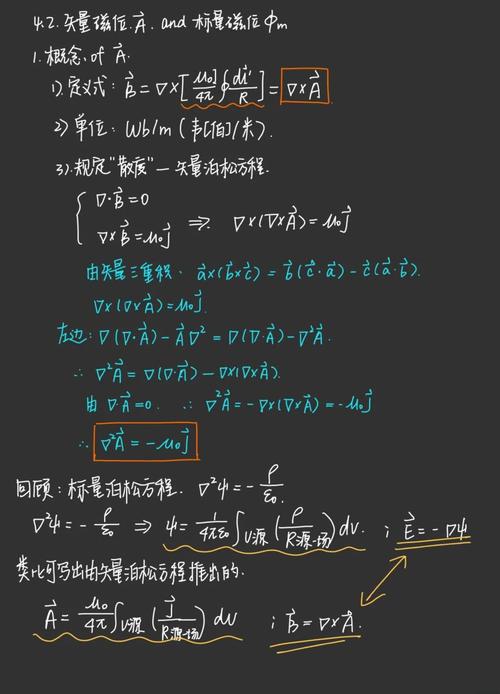 4.2. 矢量磁位 A⃗. and 标量磁位 Φm
1. 概念 of A⃗.
1). 定义式: B⃗ = ∇×[μ₀/4π ∮ dl⃗'/R] = ∇×A⃗
2) 单位: Wb/m (韦[伯]/米).
3). 规定"散度"—矢量泊松方程.
{ ∇·B⃗ = 0
∇×B⃗ = μ₀J⃗ ⇒ ∇×(∇×A⃗) = μ₀J⃗
由矢量三重积: a⃗×(b⃗×c⃗) = b⃗(c⃗·a⃗) − c⃗(a⃗·b⃗).
∇×(∇×A⃗) = μ₀J⃗.
左边: ∇(∇·A⃗) − A⃗∇² = ∇(∇·A⃗) − ∇²A⃗.
∴ ∇²A⃗ = ∇(∇·A⃗) − ∇×(∇×A⃗).
由 ∇·A⃗ = 0. ∴ ∇²A⃗ = −∇×(∇×A⃗) = −μ₀J⃗
∴ ∇²A⃗ = −μ₀J⃗
回顾: 标量泊松方程. ∇²ψ = −ρ/ε₀.
∇²ψ = −ρ/ε₀ ⇒ ψ = 1/4πε₀ ∫V源 (ρ/R源-场) dV. ; E⃗ = −∇ψ
类比可写出由矢量泊松方程推出的.
A⃗ = μ₀/4π ∫V源 (J⃗/R源-场) dV ; B⃗ = ∇×A⃗.